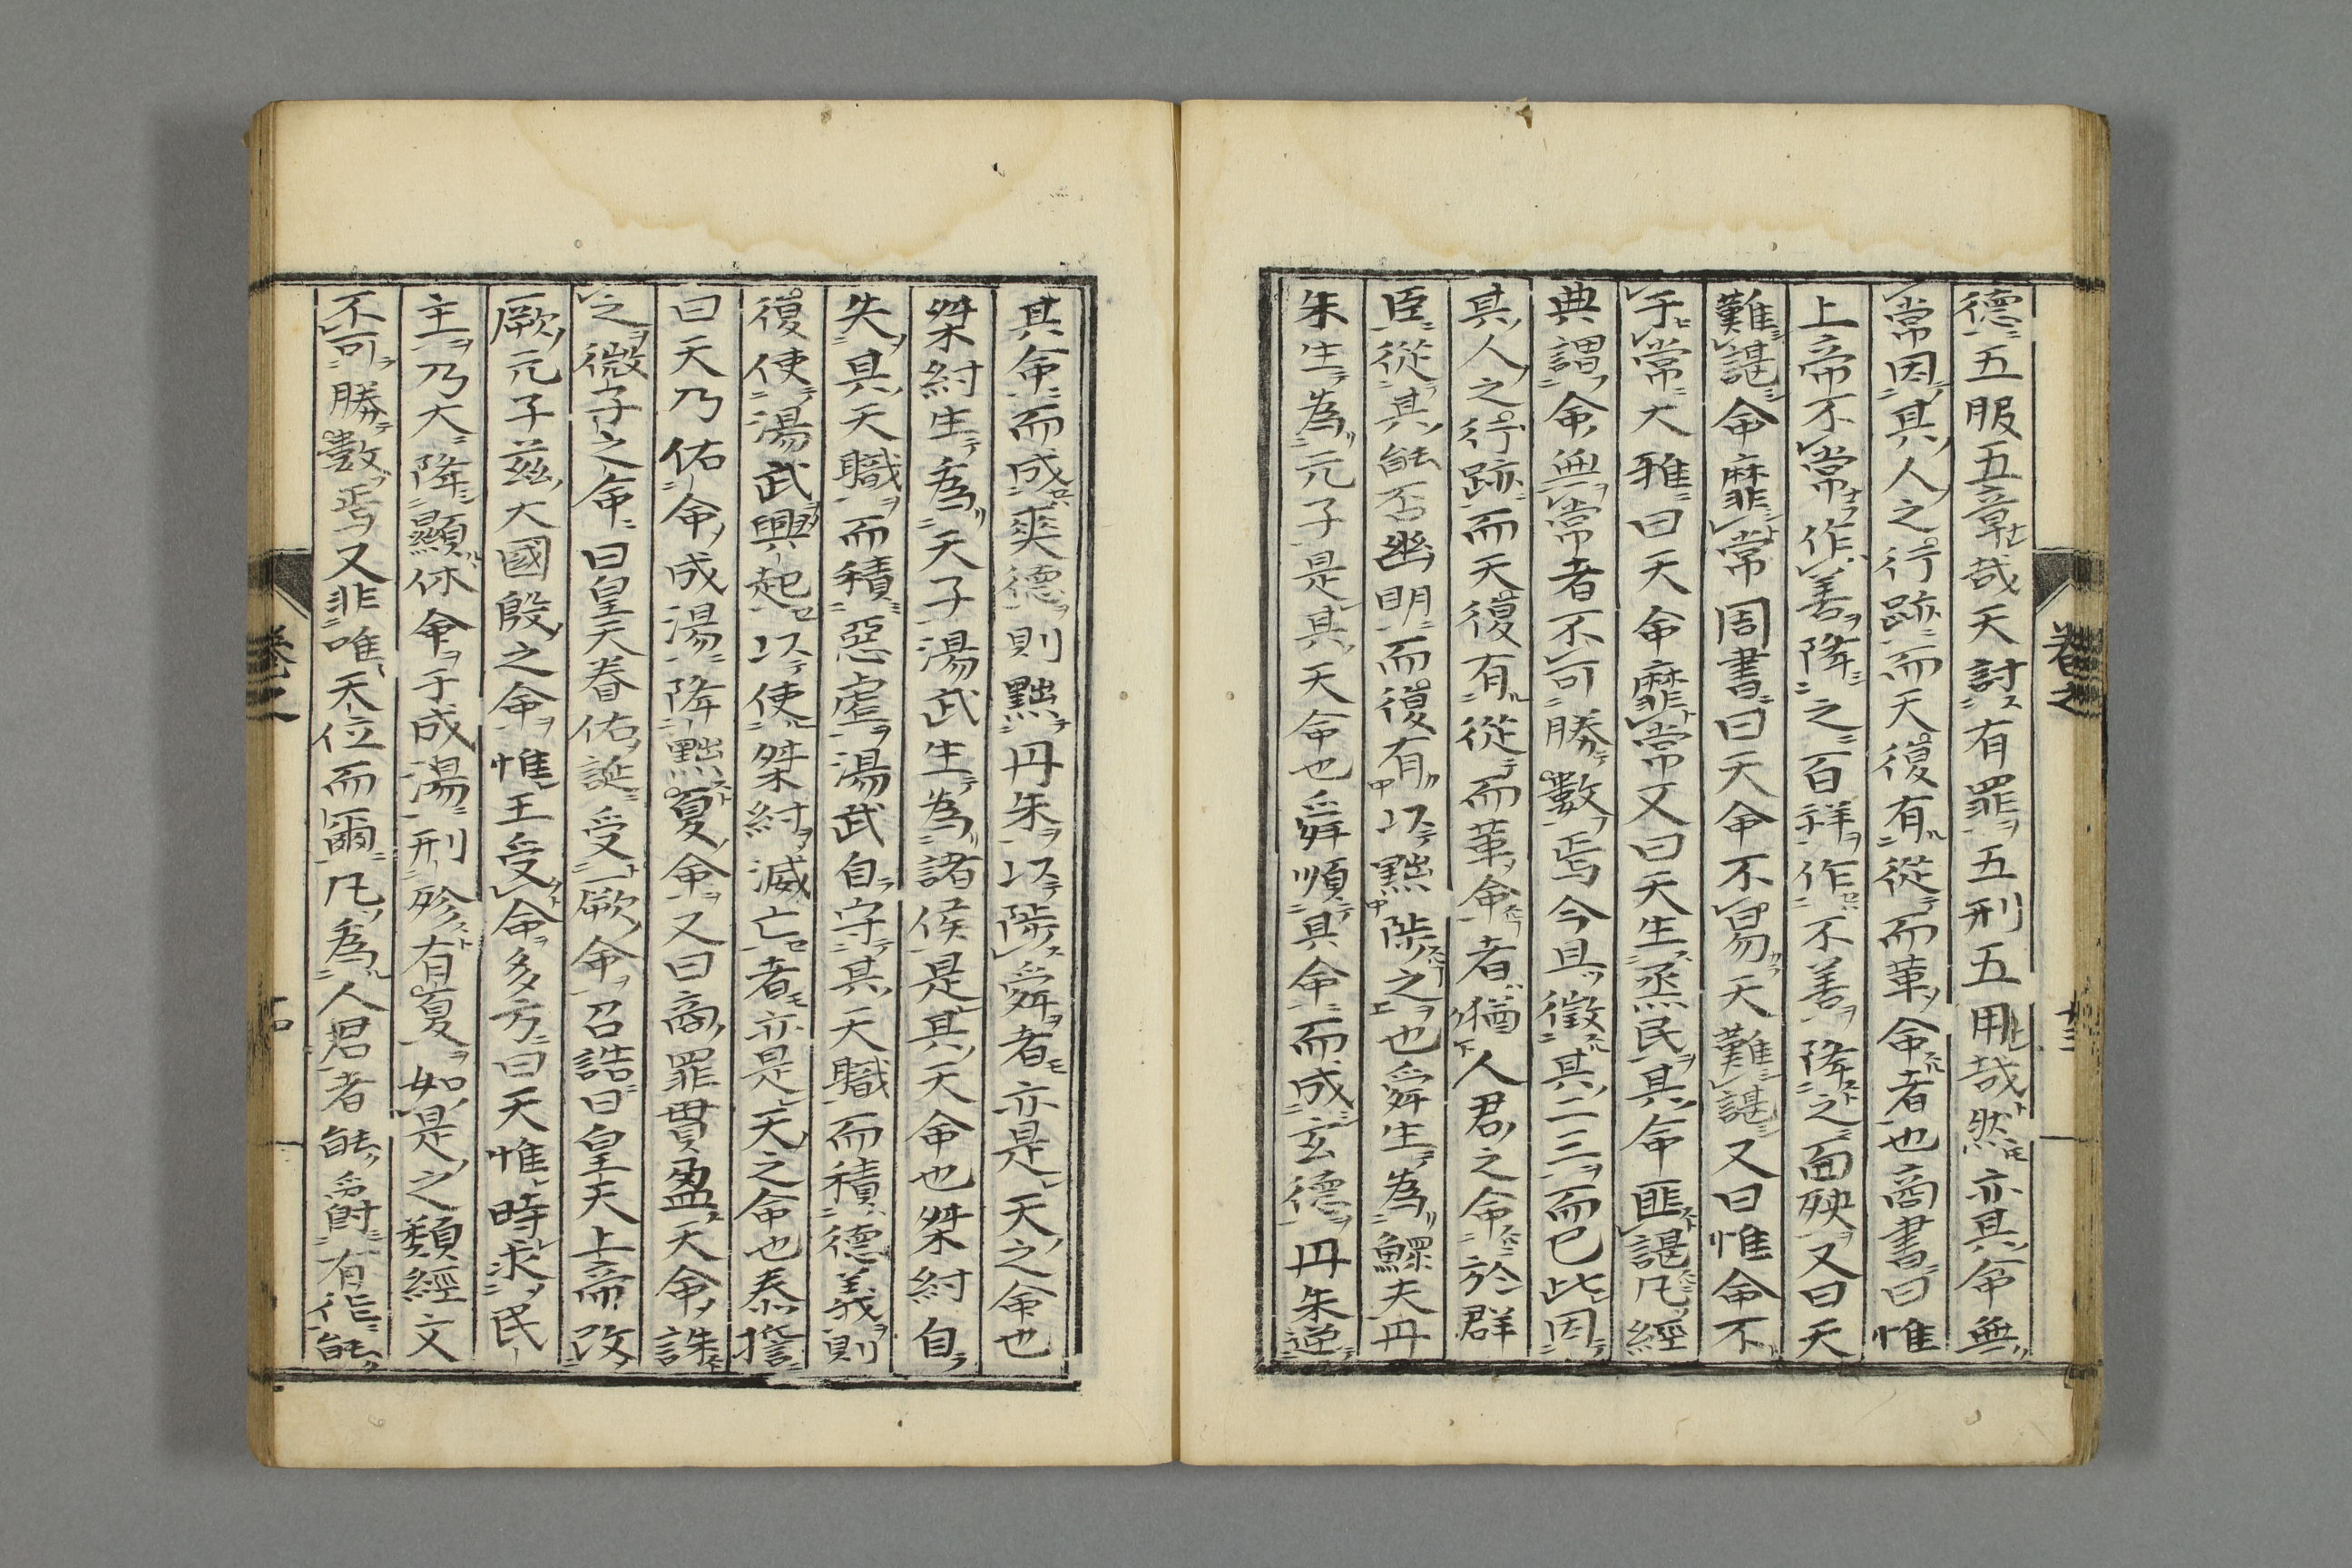 德五服五章哉天討有罪五刑五用哉然亦其命無
常因其人之行跡而天復有從而革命者也商書曰惟
上帝不常作善降之百祥作不善降之百殃又曰天
難諶命靡常周書曰天命不易天難諶又曰惟命不
于常大雅曰天命靡常又曰天生烝民其命匪諶凡經
典謂命無常者不可勝數焉今且徵其二三而已此因
其人之行跡而天復有從而革命者猶人君之命於群
臣從其能否幽明而復有以黜陟之也舜生為鰥夫丹
朱生為元子是其天命也舜順其命而成玄德丹朱逆
其命而成爽德則黜丹朱以陟舜者亦是天之命也
桀紂生為天子湯武生為諸侯是其天命也桀紂自
失其天職而積惡虐湯武自守其天職而積德義則
復使湯武興起以使桀紂滅亡者亦是天之命也泰誓
曰天乃佑命成湯降黜夏命又曰商罪貫盈天命誅
之微子之命曰皇天眷佑誕受厥命召誥曰皇天上帝改
厥元子茲大國殷之命惟王受命多方曰天惟時求民
主乃大降顯休命于成湯刑殄有夏如是之類經文
不可勝數焉又非唯天位而爾凡為人君者能爵有作能
卷之 十三
卷之